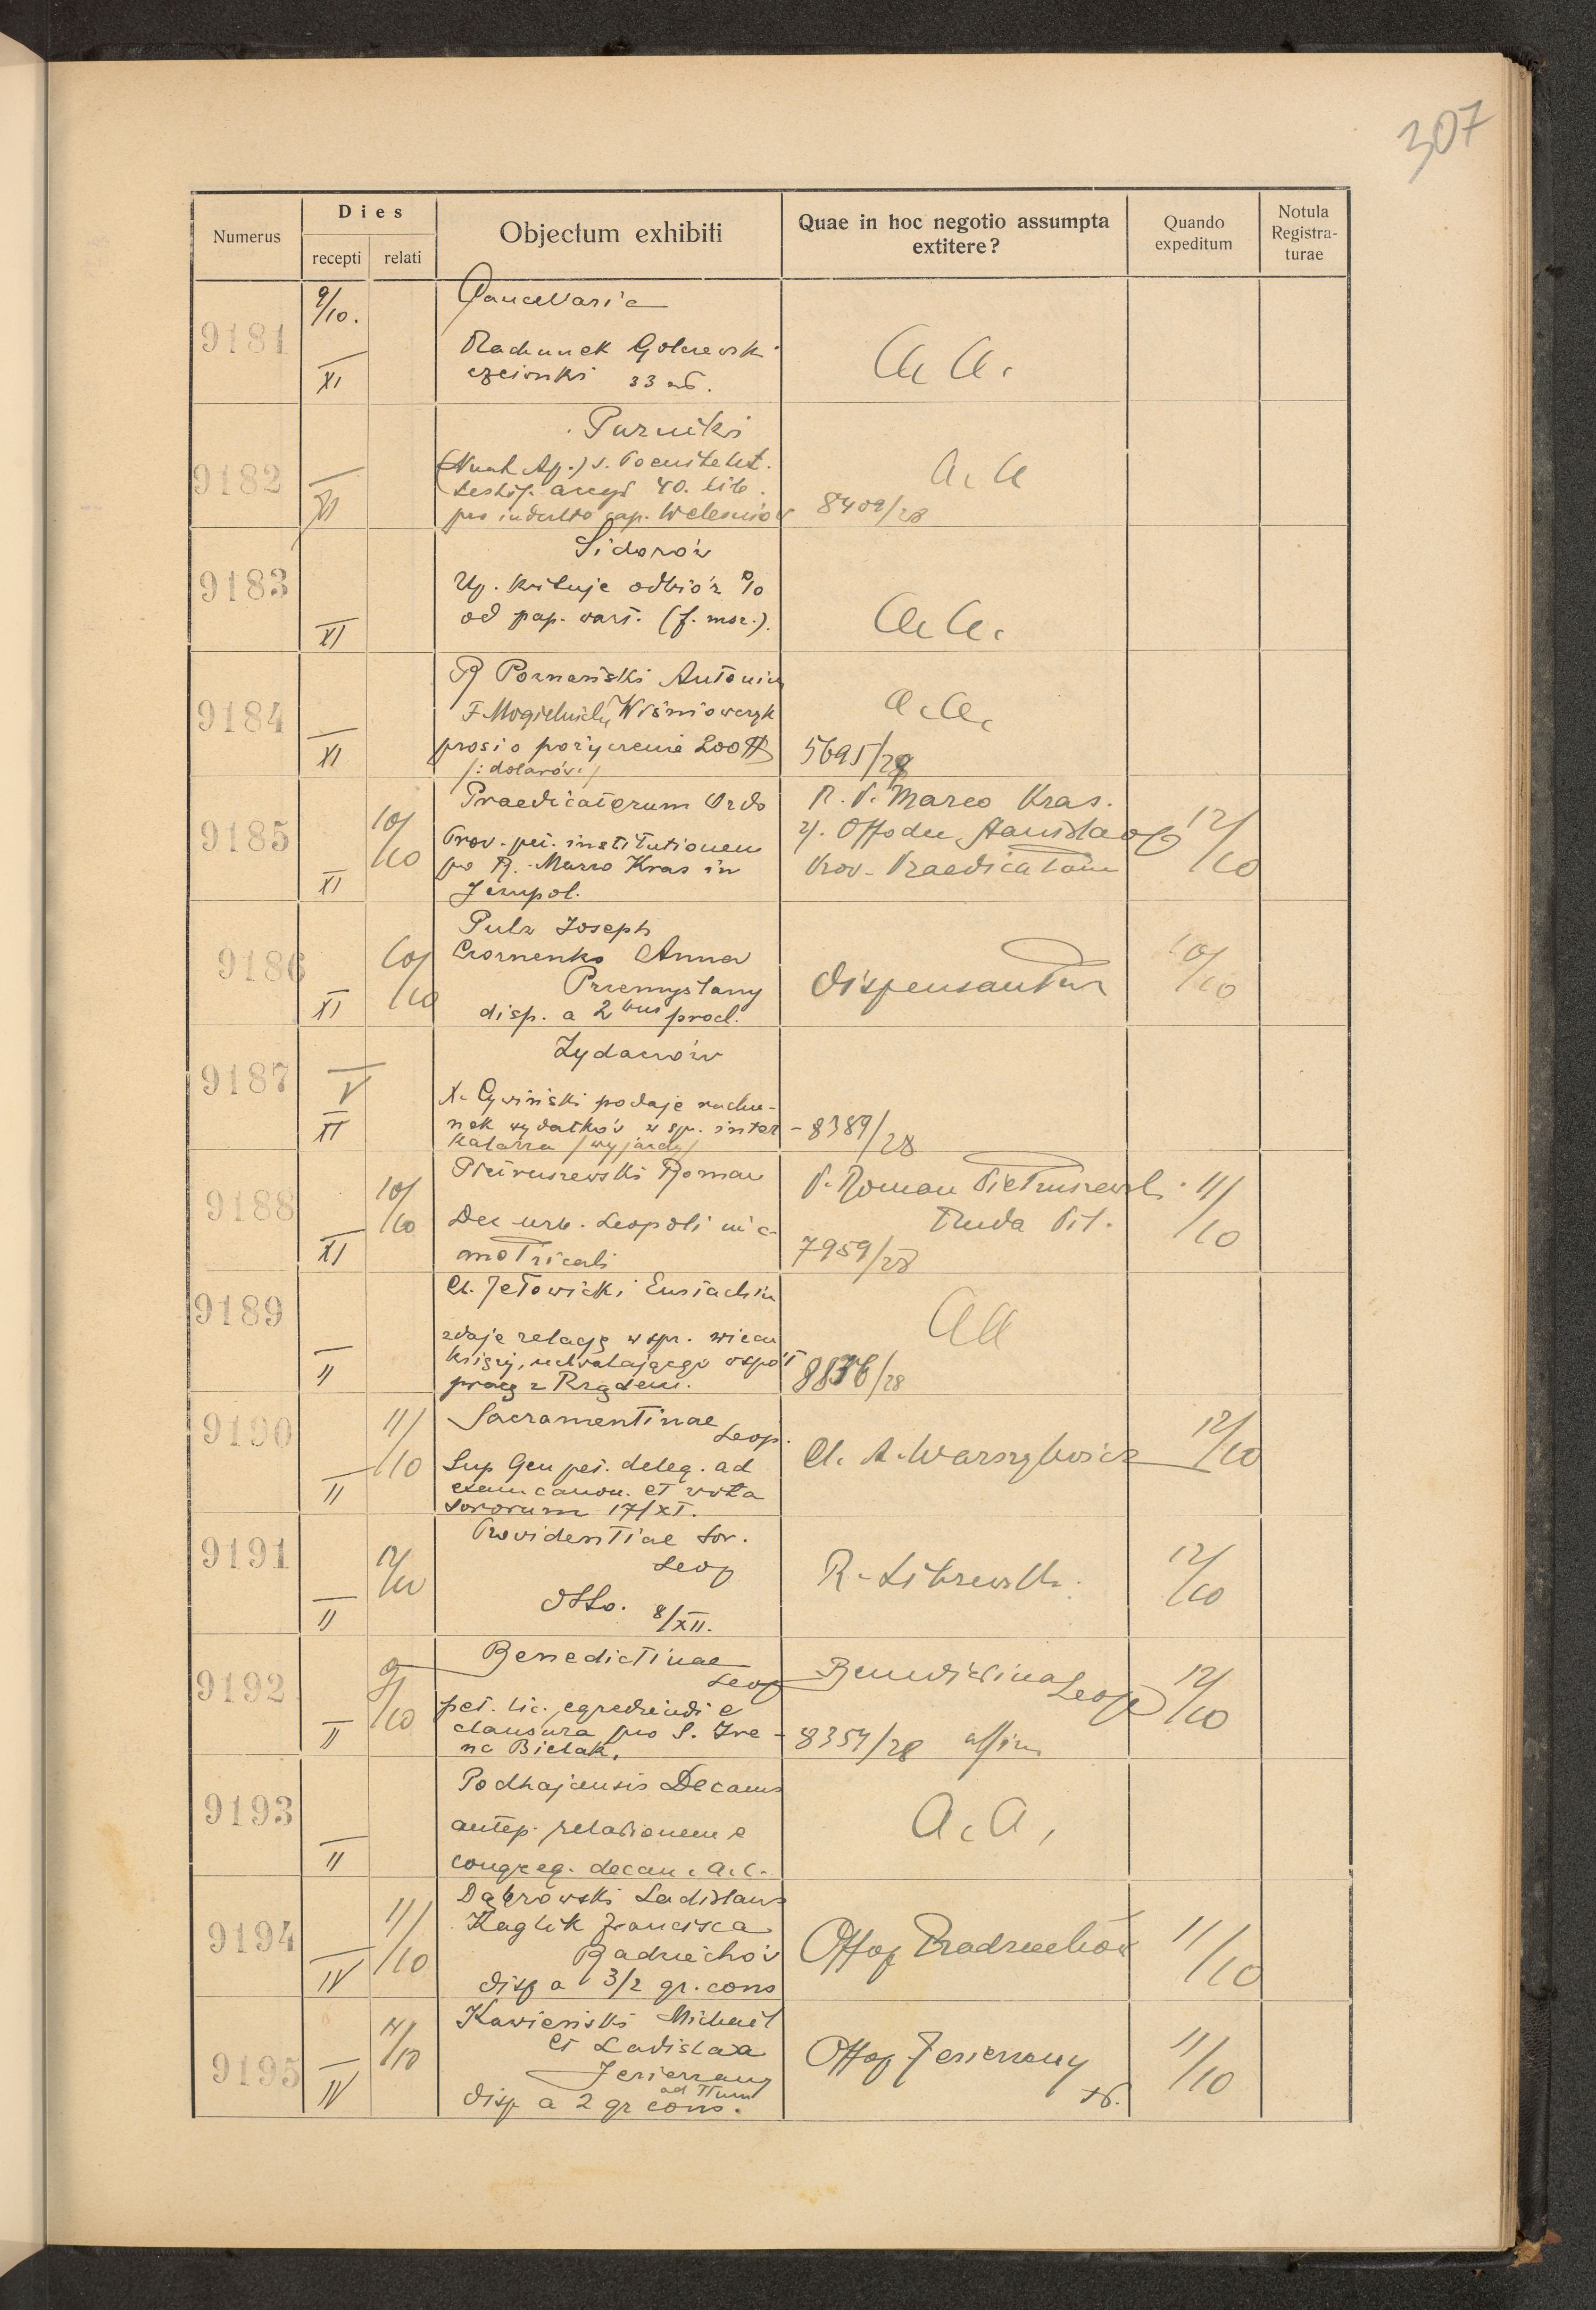 307
Numerus
Dies
recepti
relati
Objectum exhibiti
Quae in hoc negotio assumpta
extitere?
Quando
expeditum
Notula
Registra-
turae
9181
9/10.
XI
Cancellaria
Rachunek
czcionki 33 zł.
a a.
9182
XI
Purniki
(Nunt. Ap.) S. Poenitent.
testif. 40. lib.
pro indulto cap.
a. a
8409/28
9183
XI
Sidorów
Up. kwituje odbiór %
od pap. wart. (f. msz.).
a a.
9184
XI
R Poznański Antoni
F. Mogielnicki, Wiśniowczyk
prosi o pożyczenie 200 $
/: dolarów:/
a. a.
5695/28
9185
10/10
XI
Praedicatorum Ordo
Prov. pet. institutionem
po R. Marco Kras in
Jezupol.
R. P. Marco Kras.
2/. Offo du Stanislaop
Prov. Praedicatom
12/10
9186
10/10
XI
Pulz Joseph
Czornenko Anna
Przemyslany
disp. a 2 bus procl.
Dispensantur
10/10
9187
V
XI
Żydaczów
X. Cywiński podaje rachu-
nek wydatków w sp. inter
kalarza /wyjazdy/
- 8389/28
9188
10/10
XI
Pietruszewski Roman
Dec urb. Leopoli in c.
P. Roman Pietruszewski
Pit.
7959/28
11/10
9189
II
Cl. Jełowicki Eustachiu
zdaje relację w spr. wiecu
księży, uchwalającego współ
pracę z Rządem.
aa
8836/28
9190
11/10
II
Sacramentinae
Leop.
Sup Gen pet. deleg. ad
exam canon. et vota
sororum 17/XI.
Cl. A. Warszylewicz
12/10
9191
12/10
II
Providentiae Sor.
Leop
dtto. 8/XII.
R.
12/10
9192
9/10
II
Benedictinae
Leop
pet. lic. egrediendi e
clausura pro S. Ire-
na Bielak.
Benedictinae
Leop
- 8354/28
12/10
9193
II
Podhajcensis Decanus
antep. relationem e
congreg. decan. a. c.
a. a,
9194
11/10
IV
Dąbrowski Ladislaus
Kaglik Francisca
Radziechów
disp a 3/2 gr. cons
Offop Radziechów
11/10
9195
11/10
IV
Kawieński Michael
et Ladislaa
Jezierzany
disp a 2 gr cons.
ad Itum
Offop Jezierzany
11/10